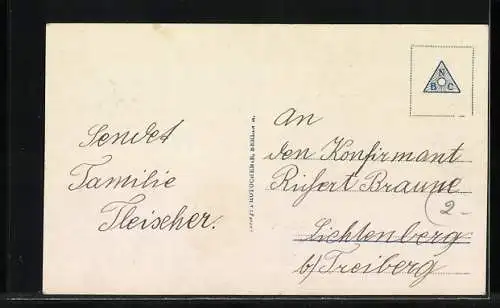 Sendet
Familie
Fleischer.
N
B C
An
den Konfirmant
Richert Braune
2-
Lichtenberg
b/ Freiberg